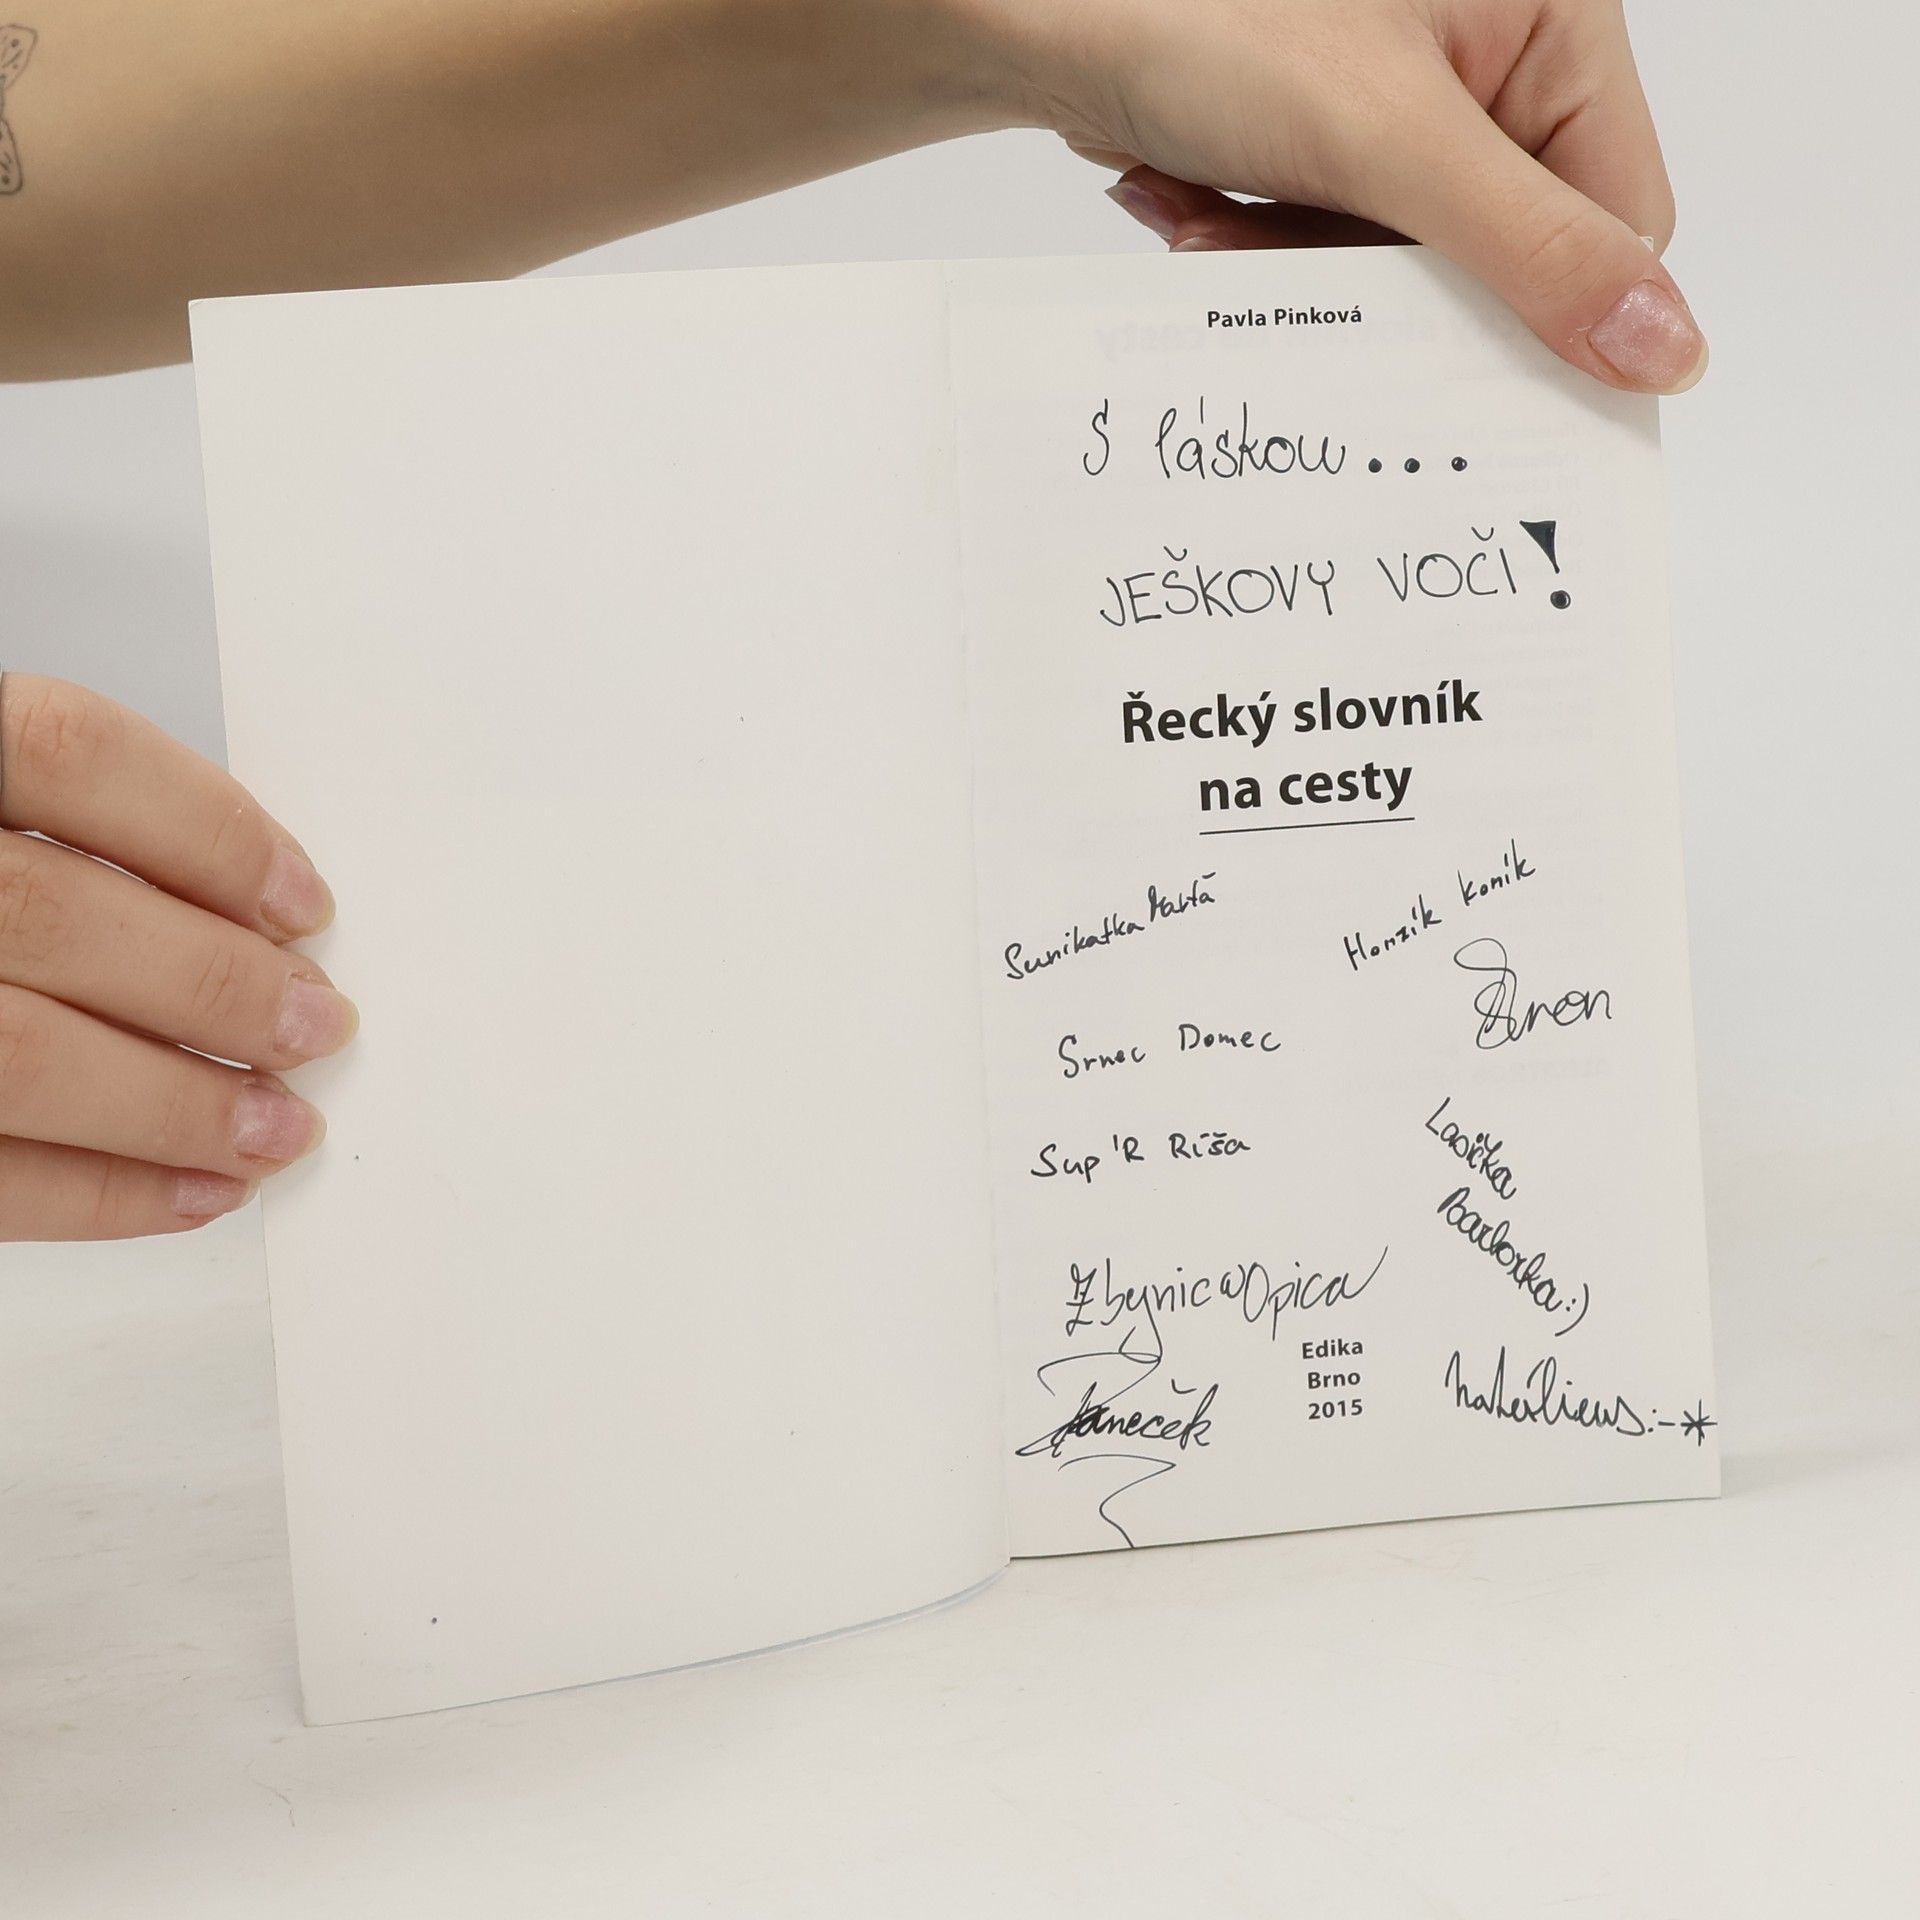 Pavla Pinková
S láskou...
JEŠKOVY VOČI!
Řecký slovník
na cesty
Sunikatka Marťa
Honzík Koník
Srnec Domec
Sup'R Ríša
Lasička
Barborka:)
Zbynic@Opica
Edika
Brno
2015
Paneček
Natálieus:-*